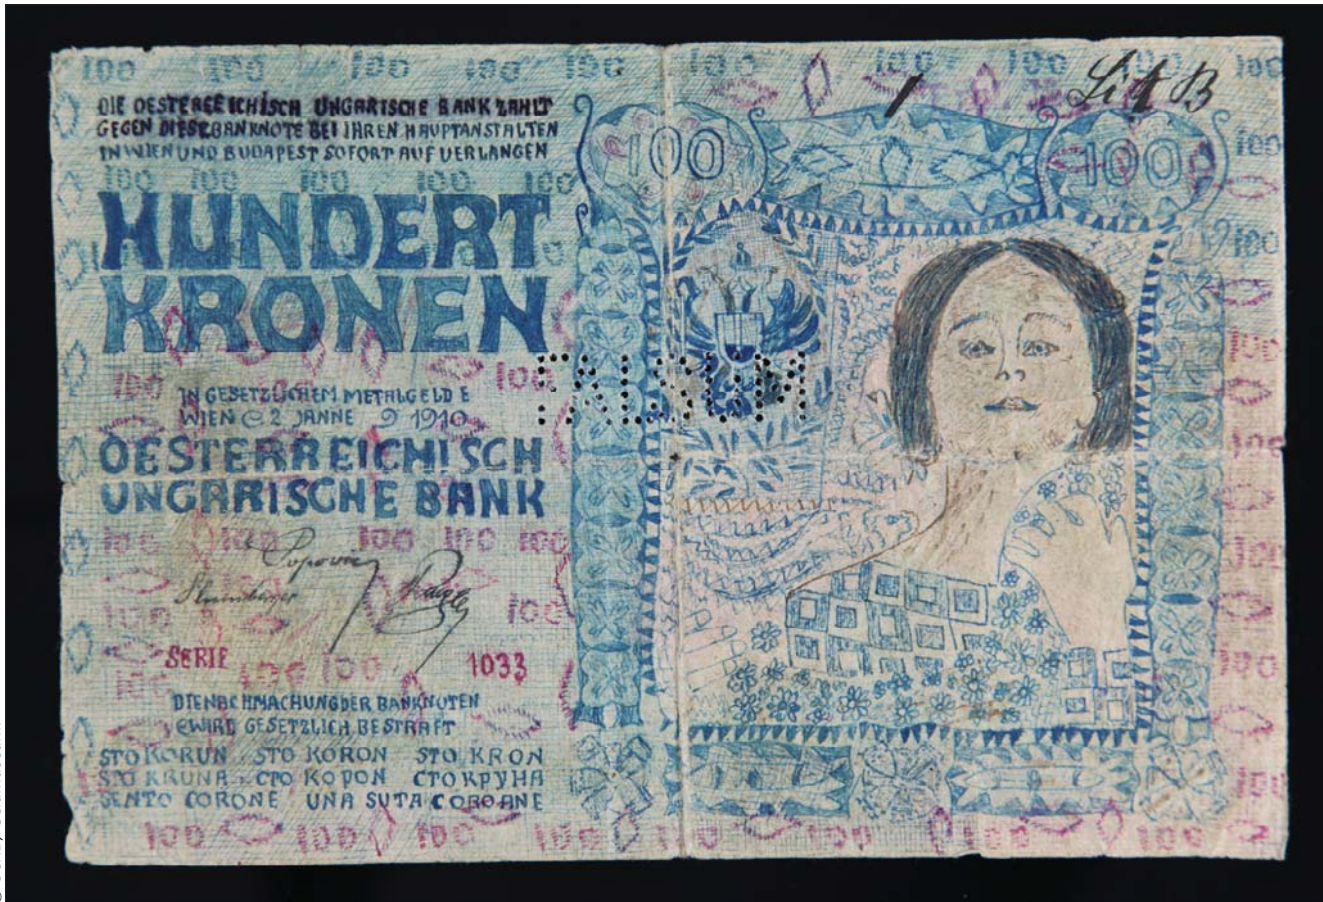 100 100 100 100 100 100 100 100 100 100
1 Lit B
DIE OESTEREEICHISCH UNGARISCHE BANK ZAHLT
GEGEN DIESEBANKNOTE BEI IHREN HAUPTANSTALTEN
IN WIEN UND BUDAPEST SOFORT AUF VERLANGEN
100 100 100 100 100
100 100
HUNDERT
KRONEN
FALSUM
100 100
IN GESETZLICHEM METALGELD E
WIEN @ 2 JANNE 9 1910
OESTERREICHISCH
UNGARISCHE BANK
100 100 100 100 100
Popovic
100
SERIE 100 100 1033
DIENACHMACHUNGDER BANKNOTEN
@WIRD GESETZLICH BESTRAFT
STO KORUN STO KORON STO KRON
STO KRUNA CTO KOPOH CTO KPYHA
CENTO CORONE UNA SUTA COROANE
100 100 100 100 100 100 100 100
100
100
100
100
100
100
100